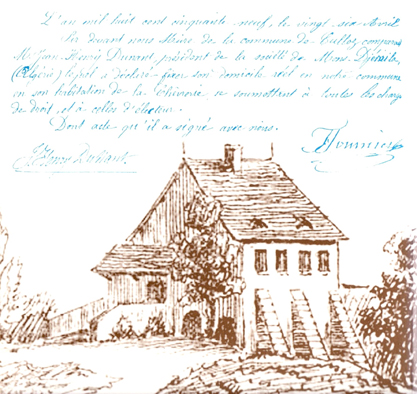 L'an mil huit cent cinquante neuf, le vingt-six Avril
Par devant nous Maire de la commune de Culoz, comparut
Mr Jean Henry Dunant, président de la société de Mons-Djémila,
(Algérie) lequel a déclaré fixer son domicile réel en notre commune
en son habitation de la et se soumettant à toutes les charges
de droit, et à celles d'électeur.
Dont acte qu'il a signé avec nous.
Fournier
J. Henry Dunant